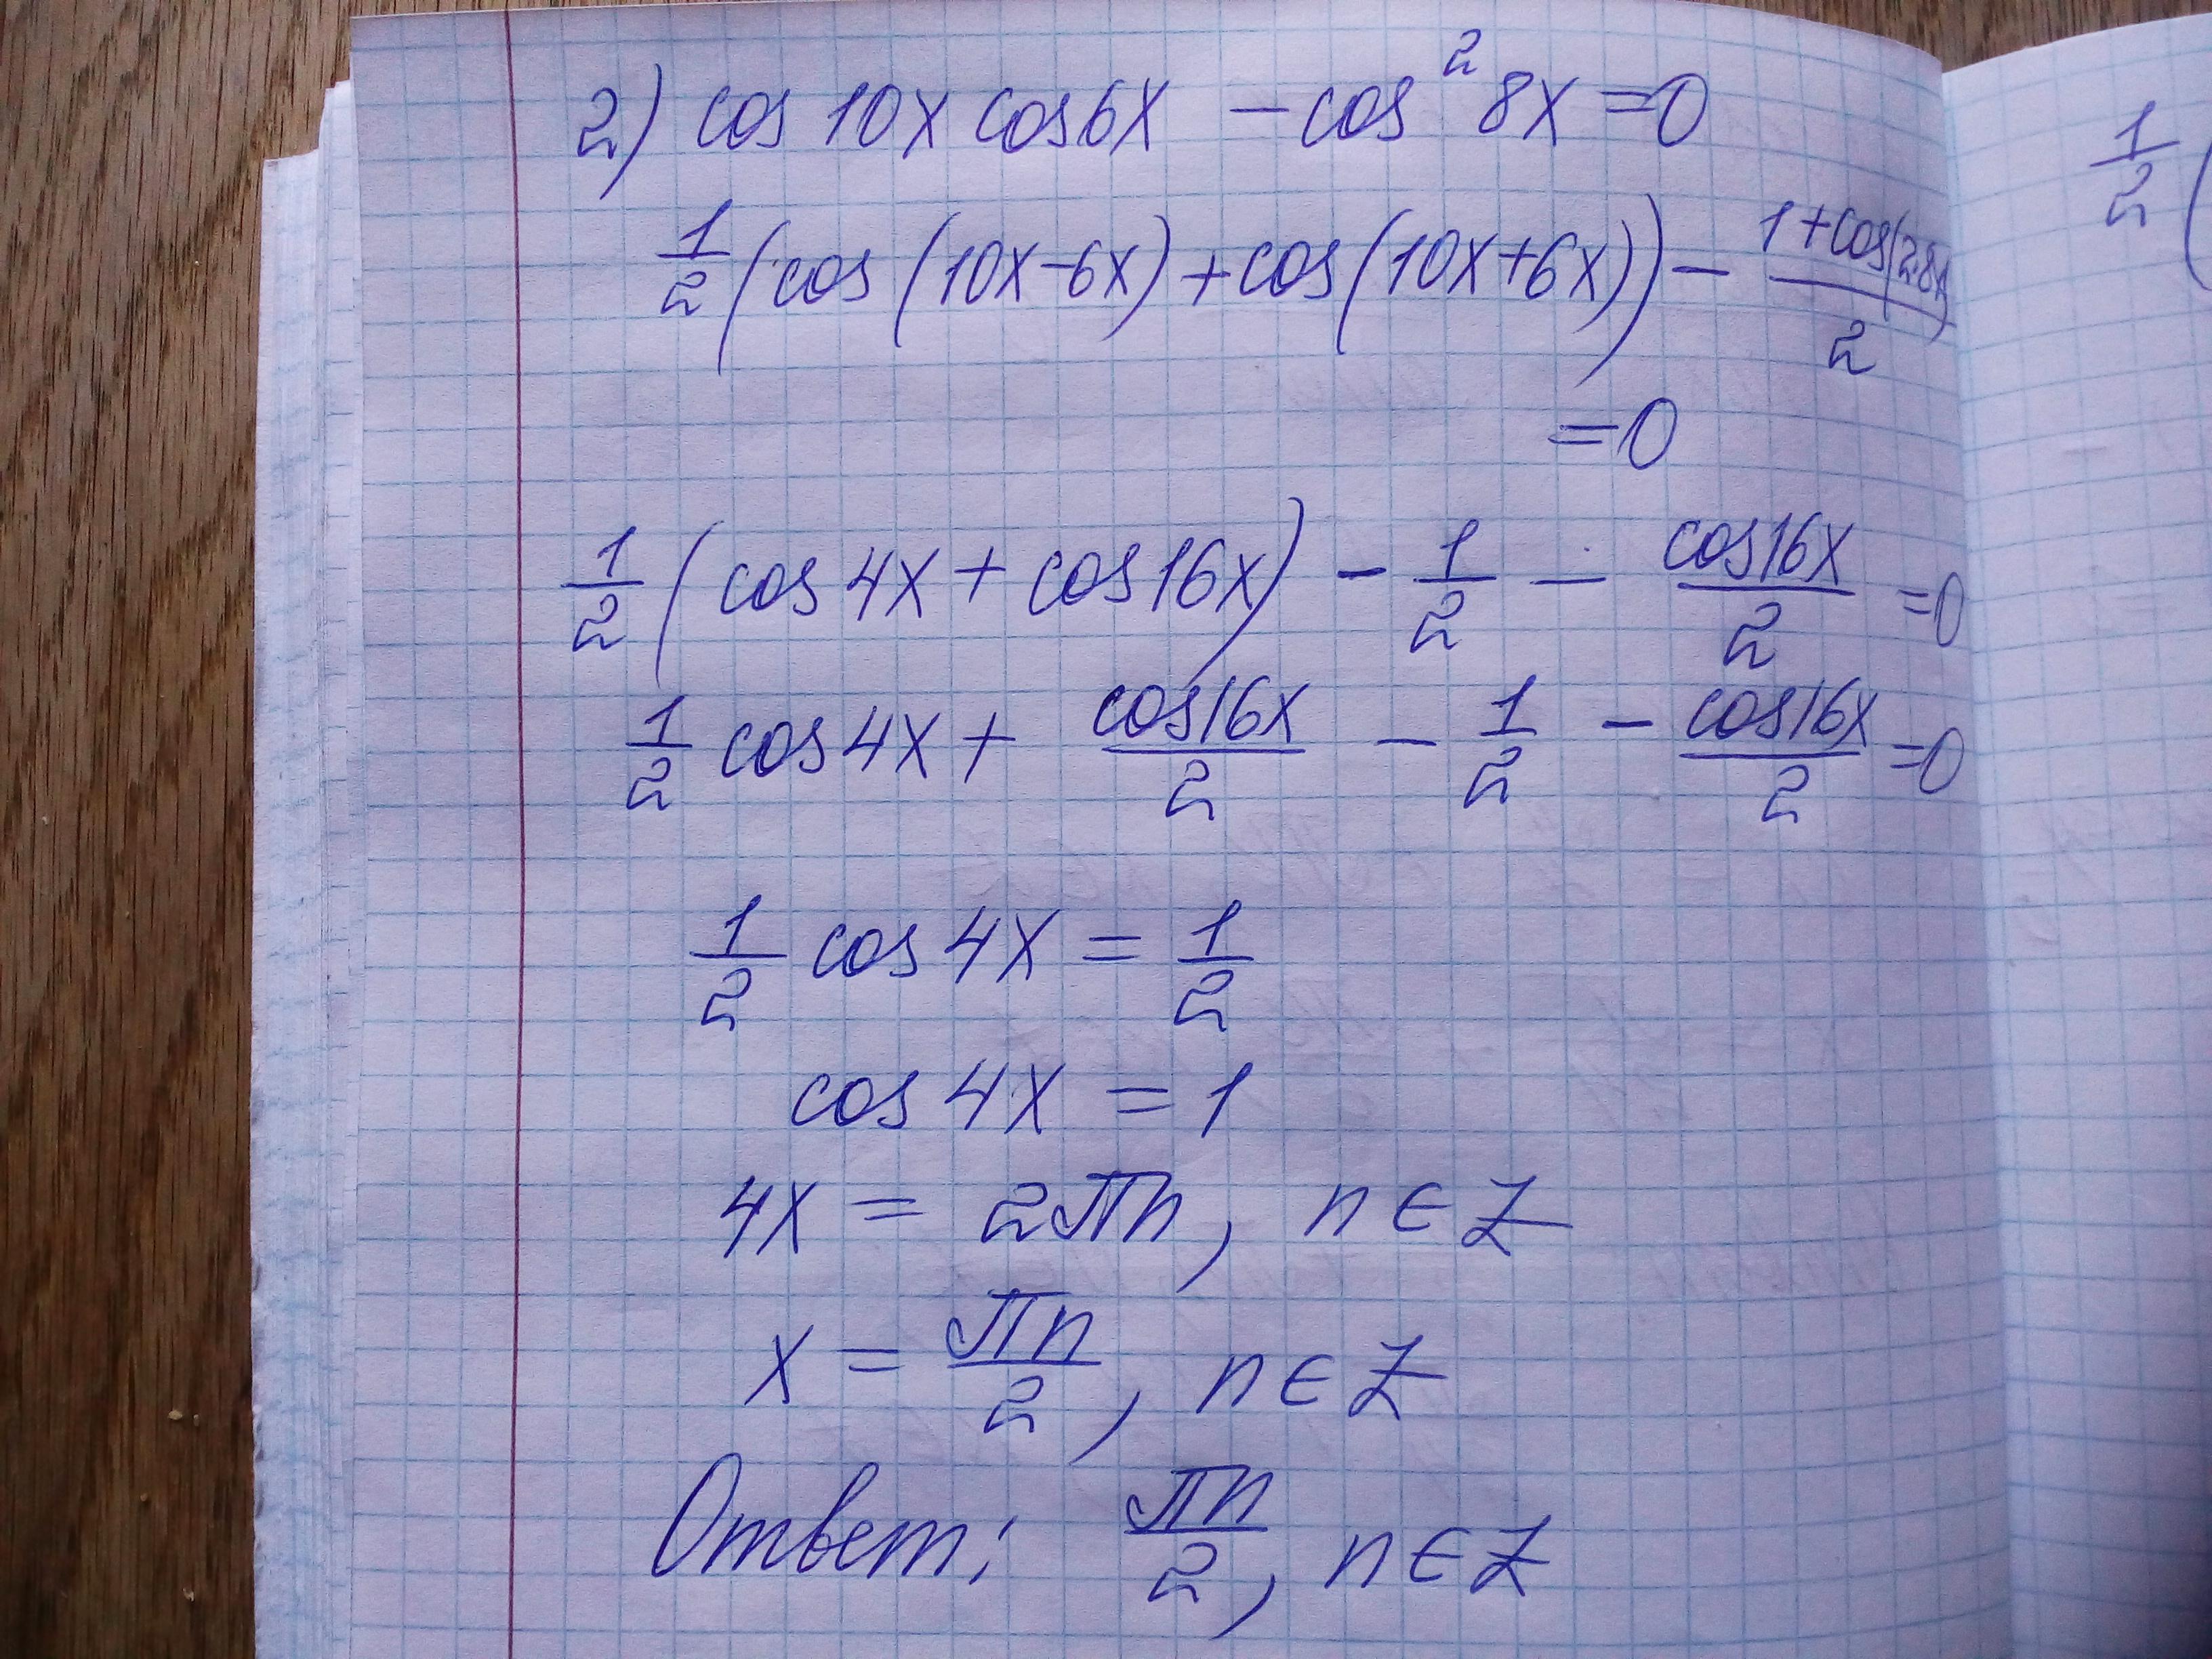 2) cos 10x cos6x - cos² 8x = 0
1/2 (cos (10x-6x) + cos (10x+6x)) - (1 + cos(2·8x))/2
= 0
1/2 (cos 4x + cos 16x) - 1/2 - cos16x/2 = 0
1/2 cos 4x + cos16x/2 - 1/2 - cos16x/2 = 0
1/2 cos 4x = 1/2
cos 4x = 1
4x = 2πn, n ∈ Z
x = πn/2, n ∈ Z
Ответ: πn/2, n ∈ Z
1/2 (